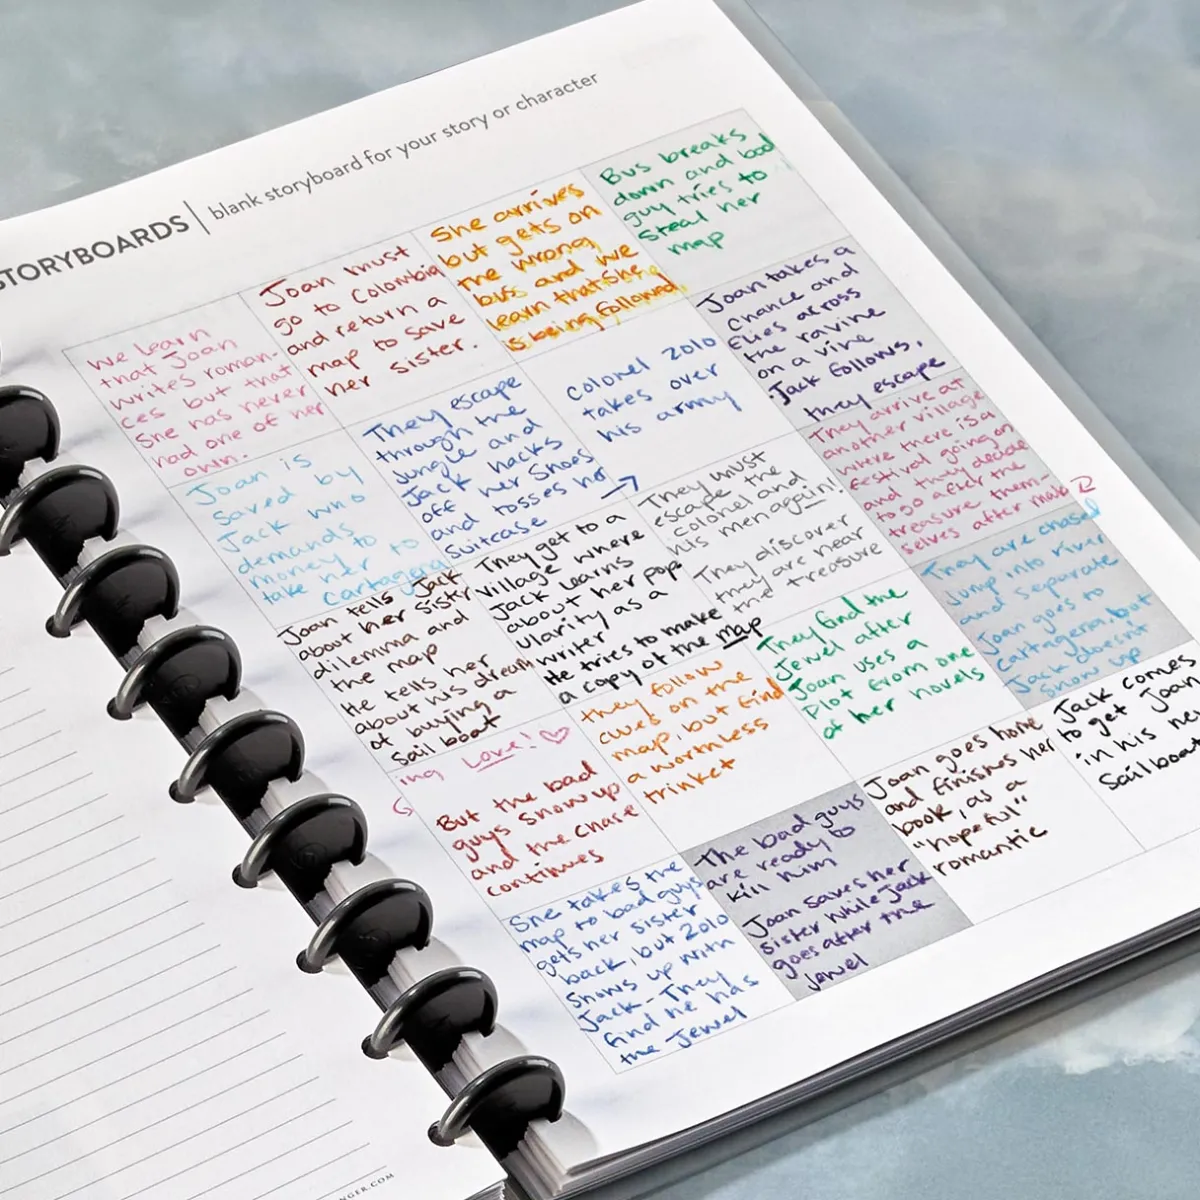 STORYBOARDS | blank storyboard for your story or character
We learn
that Joan
writes roman-
ces but that
she has never
had one of her
own.
Joan must
go to Colombia
and return a
map to save
her sister.
She arrives
but gets on
the wrong
bus and we
learn that she
is being followed
Bus breaks
down and bad
guy tries to
steal her
map
Joan is
saved by
Jack who
demands
money to
take her to
Cartagena
They escape
through the
jungle and
Jack hacks
off her shoes
and tosses her
suitcase
colonel Zolo
takes over
his army
Joan takes a
chance and
flies across
the ravine
on a vine
Jack follows,
they escape
Joan tells Jack
about her sister
dilemma and
the map
He tells her
about his dream
of buying a
sail boat
They get to a
village where
Jack learns
about her pop
ularity as a
writer
He tries to make
a copy of the map
They must
escape the
colonel and
his men again!
They discover
they are near
the treasure
They arrive at
another village
where there is a
festival going on
and they decide
to go after the
treasure them-
selves after
map
ing Love! ♡
But the bad
guys show up
and the chase
continues
they follow
clues on the
map, but find
a worthless
trinket
They find the
Jewel after
Joan uses a
plot from one
of her novels
They are chased
Jump into river
and separate
Joan goes to
Cartagena, but
Jack doesnt
show up
She takes the
map to bad guys
gets her sister
back, but Zolo
shows up with
Jack - They
find he has
the Jewel
The bad guys
are ready to
kill him
Joan saves her
sister while Jack
goes after the
jewel
Joan goes home
and finishes her
book, as a
"hopeful"
romantic
Jack comes
to get Joan
in his new
sailboat
NGER.COM